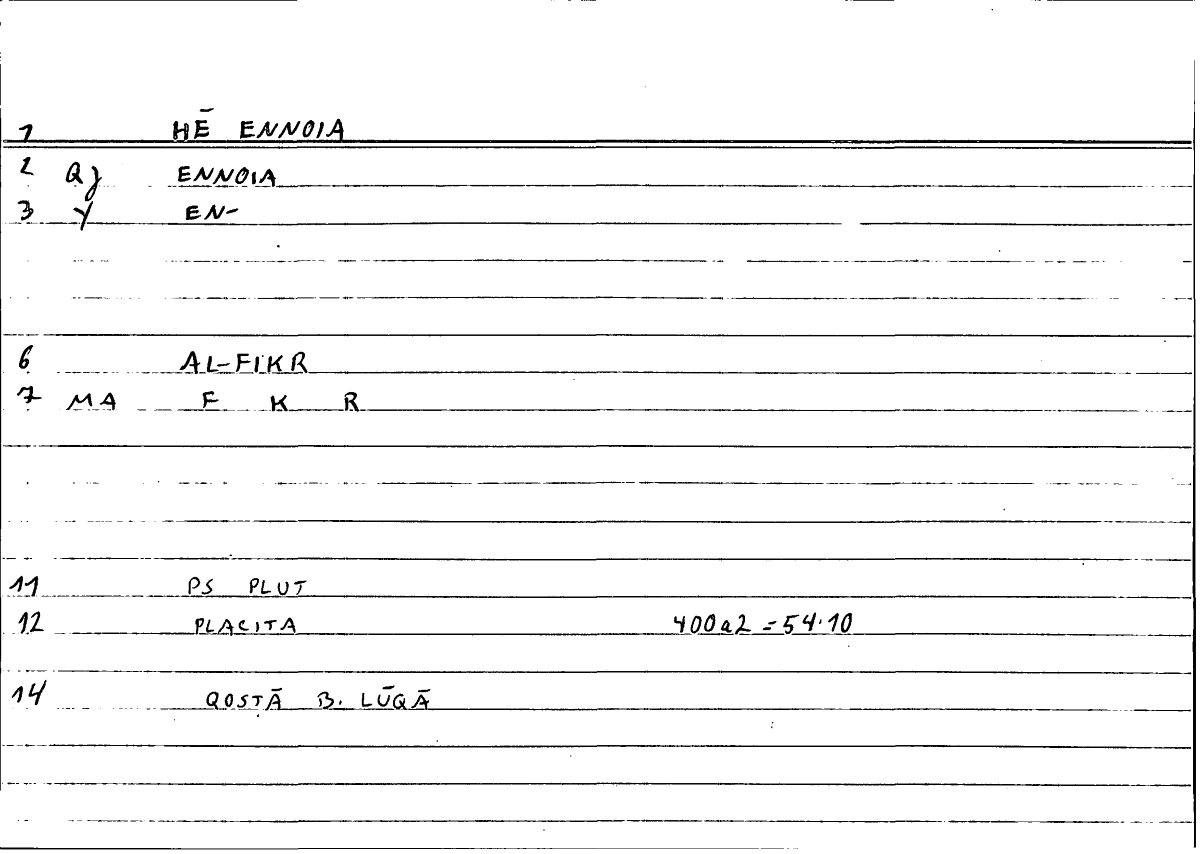 1 HĒ ENNOIA
2 QJ ENNOIA
3 Y EN-
6 AL-FIKR
7 MA F K R
11 PS PLUT
12 PLACITA 400a2 = 54.10
14 QOSTĀ B. LŪQĀ